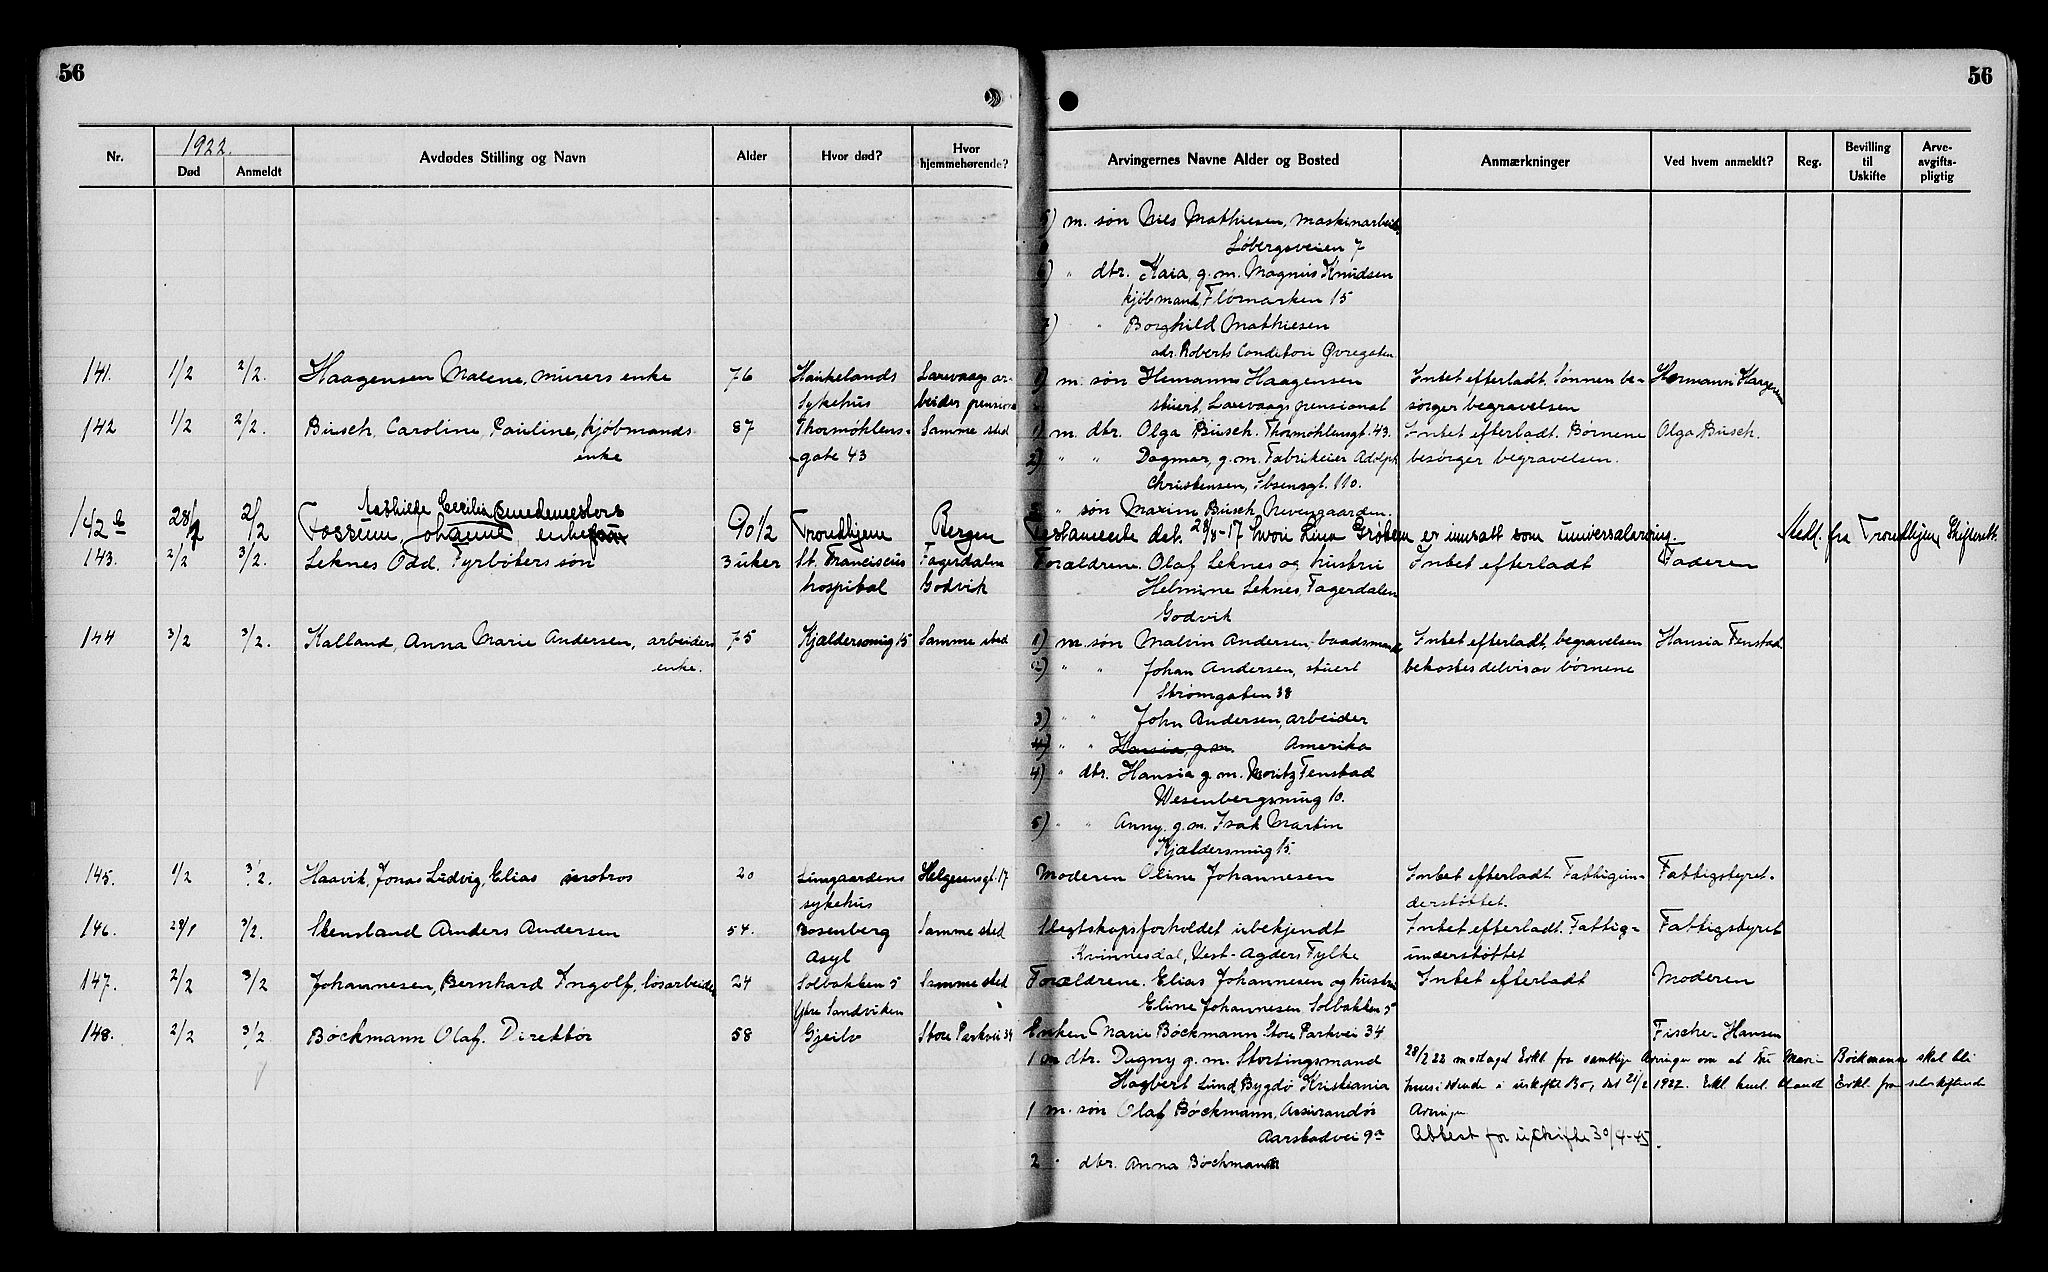 56
56
Nr. 1922. Død Anmeldt Avdødes Stilling og Navn Alder Hvor død? Hvor hjemmehørende? Arvingernes Navne Alder og Bosted Anmærkninger Ved hvem anmeldt? Reg. Bevilling til Uskifte Arve-avgifts-pligtig
5) m. søn Nils Mathiesen, maskinarbeider
Løbergsveien 7
6) " dtr. Kaia, g.m. Magnus Knudsen
kjøbmand, Flørnarken 15
7) " Borghild Mathiesen
adr. Roberts Conditori Øvregaten
141. 1/2 2/2. Haagensen Malene, murers enke 76 Haukelands Laxevaags ar- 1) m. søn Hermann Haagensen Intet efterladt. Sønnen be- Hermann Haagensen
Sykehus beider pension stuert, Laxevaags pensionat sørger begravelsen
142 1/2 2/2. Busch, Caroline, Pauline, kjøbmands 87 Thormøhlens- Samme sted 1) m. dtr. Olga Busch. Thormøhlensgt. 43. Intet efterladt. Børnene Olga Busch.
enke gate 43 2) " " Dagmar, g.m. Fabrikeier Adolph besørger begravelsen.
Christensen, Ibsensgt. 110.
søn Maxim Busch, Nevengaarden.
Cecilie Smedemesters
142 b 2/2 Fossum, Johanne enke 90 1/2 Trondhjem Bergen Testamente dat. 28/8-17 hvori er innsatt som universalarving. Medl. fra Trondhjem Skifterett.
143. 2/2 3/2. Leknes Odd. Fyrbøters søn 3 uker St. Franciscus Fagerdalen Forældrene. Olaf Leknes og hustru Intet efterladt Faderen
hospital Godvik Helmine Leknes, Fagerdalen
Godvik
144 3/2 3/2. Kalland, Anna Marie Andersen, arbeiders 75 Kjældersmug 15 Samme sted 1) m. søn Malvin Andersen, baadsmand Intet efterladt, begravelsen Hansia Fenstad
enke. 2) " " Johan Andersen, stuert bekostes delvis av børnene
Strømgaten 38
3) " " John Andersen, arbeider
4) " " Hansia, g.m. Amerika
4) " dtr. Hansia g.m. Moritz Fenstad
Wesenbergsmug 10.
5) " " Anny. g.m. Isak Martin
Kjældersmug 15.
145. 1/2 3/2. Haavik, Jonas Ludvig, Elias matros 20 Lungaardens Helgesensgt. 17 Moderen Oline Johannesen Intet efterladt. Fattigun- Fattigstyret.
sykehus derstøttet.
146. 28/1 3/2. Stensland Anders Andersen 54. Rosenberg Samme sted Slegtskapsforholdet ubekjendt Intet efterladt. Fattig- Fattigstyret
Asyl Kvinnesdal, Vest-Agders Fylke understøttet
147. 2/2 3/2 Johannesen, Bernhard Ingolf, løsarbeider 24 Solbakken 5 Samme sted Forældrene. Elias Johannesen og hustru Intet efterladt Moderen
Ytre Sandviken Eline Johannesen Solbakken 5
148. 2/2 3/2 Bøckmann Olaf. Direktør 58 Gjeilo Store Parkvei 34 Enken Marie Bøckmann Store Parkvei 34 Fischer-Hansen
1 m dtr. Dagny g.m. Stortingsmand 28/2 22 mottaget Erkl. fra samtlige Arvinger om at Fru Marie Bøckmann skal bli
Hagbert Lund, Bygdø Kristiania hensiddende i uskiftet Bo, 1922. Erkl. henl. blandt Erkl. fra selvskiftende
1 m. søn Olaf Bøckmann, Assurandør Arvinger
Aarstadvei 9a Attest for uskifte 30/4-45.
2 " dtr. Anna Bøckmann